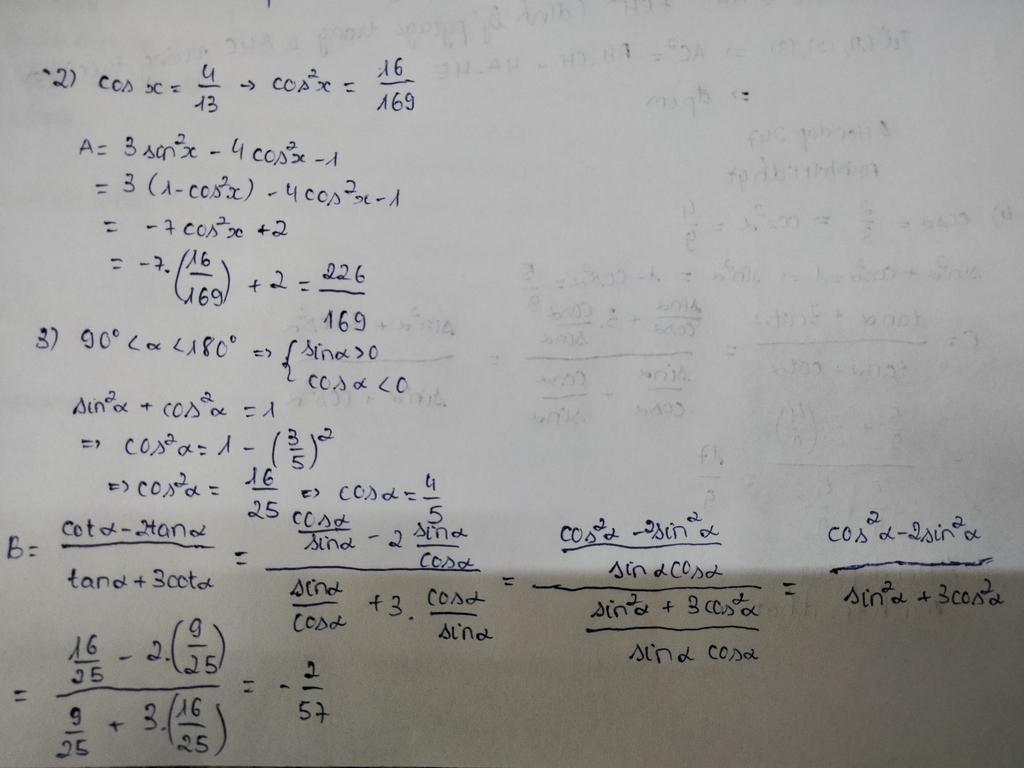 2) cos x = 4/13 → cos²x = 16/169
A = 3 sin²x - 4cos²x - 1
= 3 (1-cos²x) - 4cos²x - 1
= -7cos²x + 2
= -7.(16/169) + 2 = 226/169
3) 90° < α < 180° => { sinα > 0
cosα < 0
sin²α + cos²α = 1
=> cos²α = 1 - (3/5)²
=> cos²α = 16/25 => cosα = 4/5
B = (cotα - 2tanα)/(tanα + 3cotα) = (cosα/sinα - 2 sinα/cosα)/(sinα/cosα + 3. cosα/sinα) = ((cos²α - 2sin²α)/(sinαcosα))/((sin²α + 3cos²α)/(sinα cosα)) = (cos²α - 2sin²α)/(sin²α + 3cos²α)
= (16/25 - 2.(9/25))/(9/25 + 3.(16/25)) = - 2/57